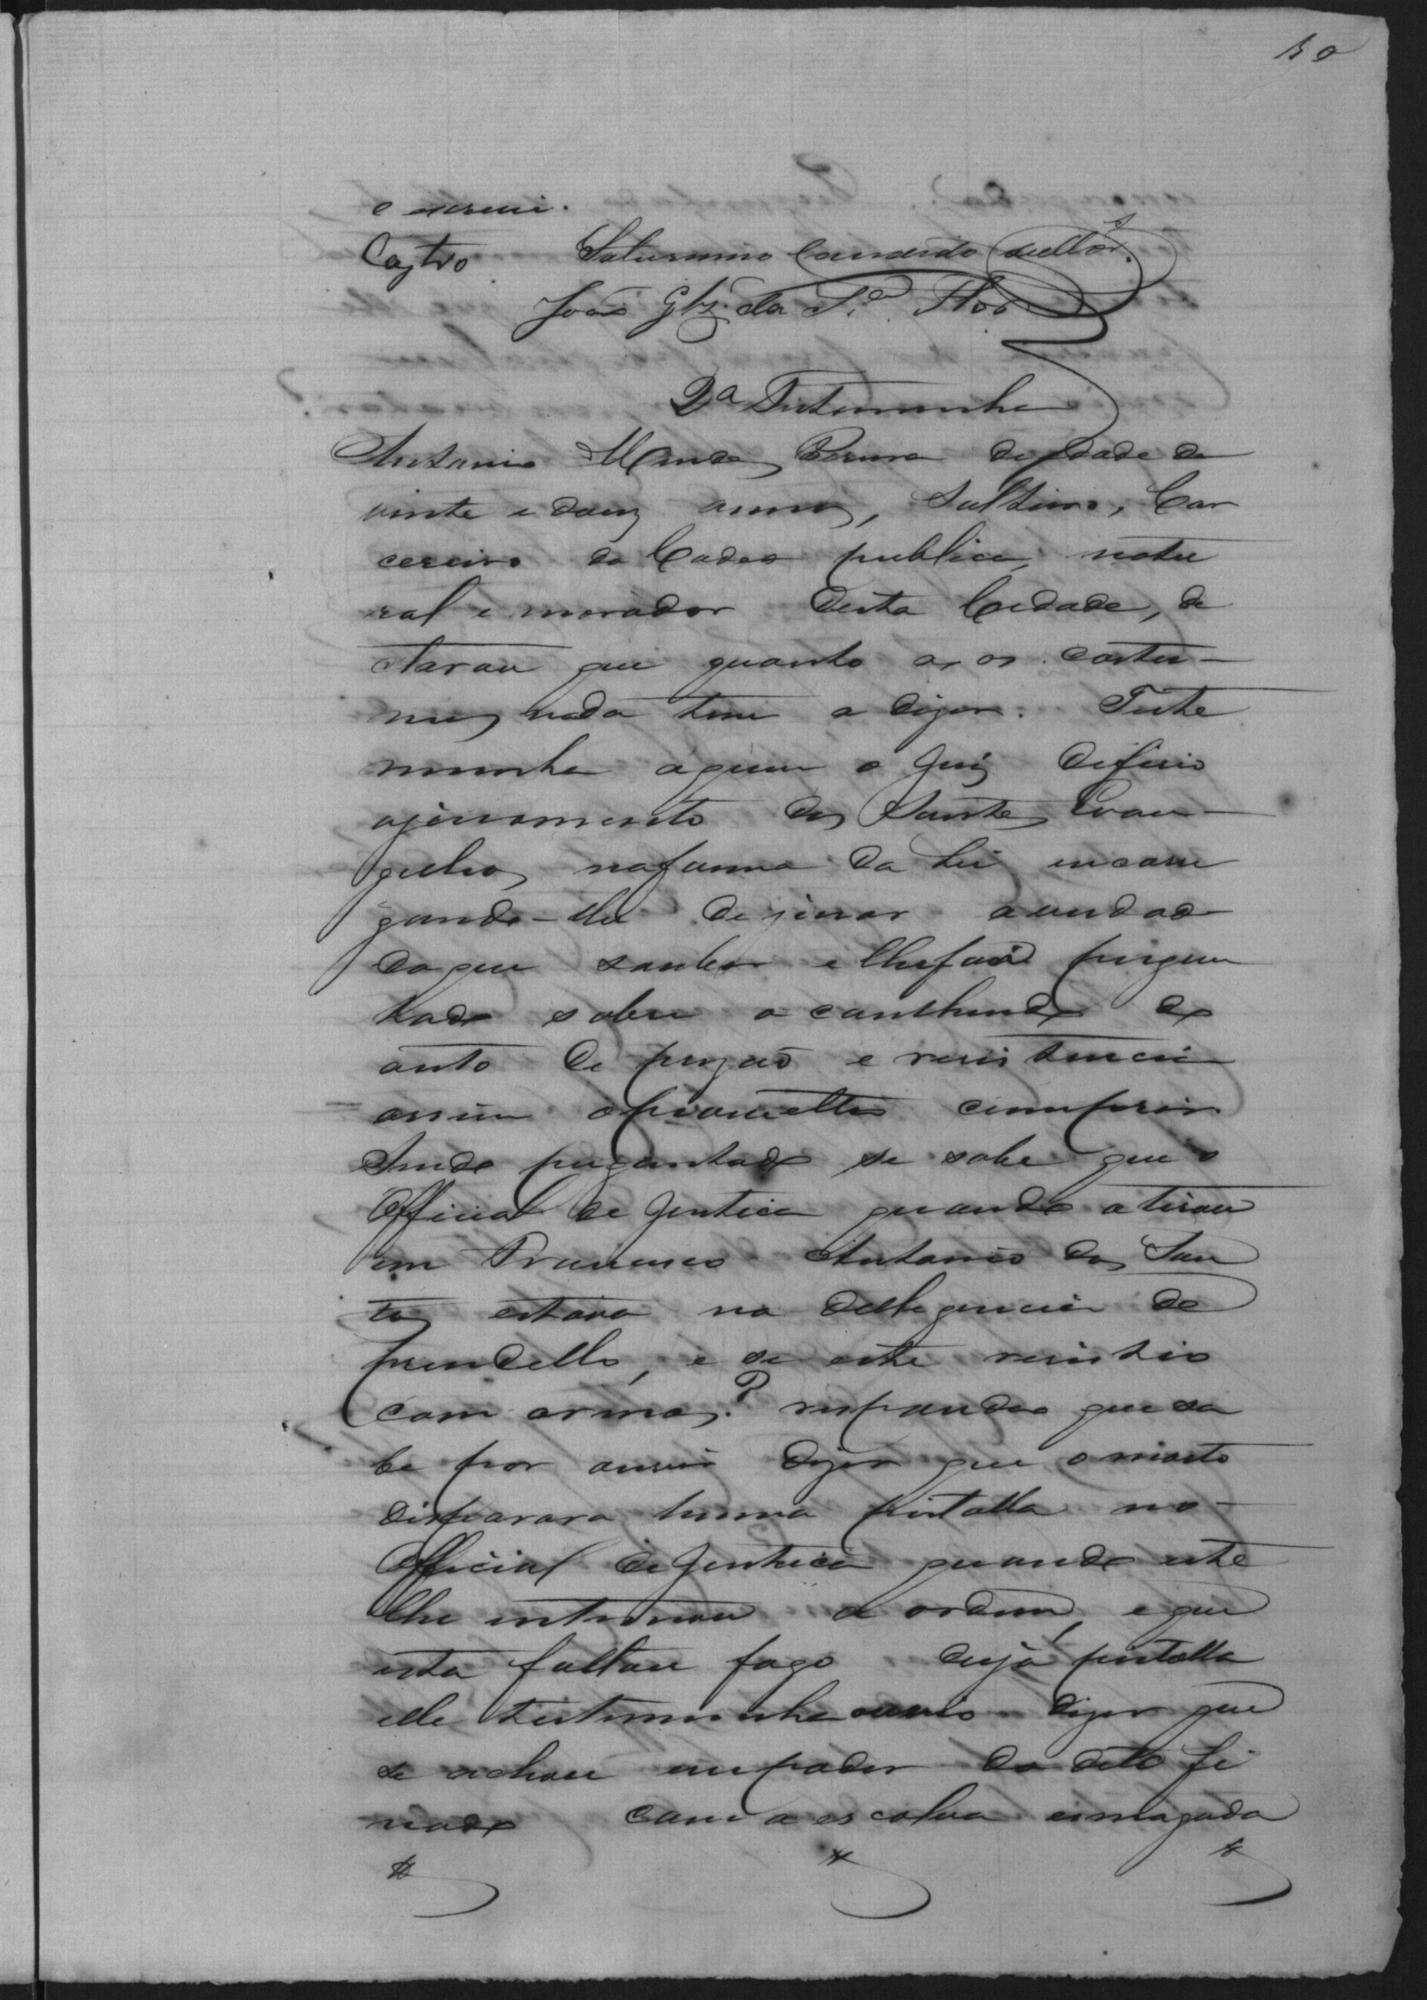 e escrevi.
Castro Saturnino Candido
João Glz. da S.ª Flor
2ª Testemunha
Antonio Mendes Pereira de idade de
vinte e dous annos, Solteiro, Car
cereiro da Cadea publica, natu
ral e morador desta Cidade, de
clarou que quanto a os costu-
mes nada teve a dizer. Teste
munha áquem o Juiz deferio
ojuramento dos Santos Evan-
gelhos naforma da Lei encarre
gando-lhe dejurar averdade
doque souber e lhefosse pergun
tado sobre o conthendo do
auto de prizaõ e resistencia
assim oprometteo cumprir
Sendo perguntado se sabe que o
Official de Justica quando atirou
em Francisco Antonio dos San
tos estava na delligencia de
prendello, e se este resistio
com armas? respondeo que sa
be por ouvir dizer que omorto
disparara huma pistolla no
Official de Justica quando este
lhe intimou a ordem, e que
esta faltou fogo cuja pistolla
elle testemunha ouvio dizer que
se achou empoder do dito fi
nado com a escolva esmagada